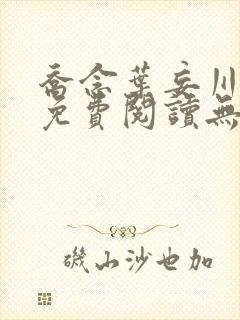 喬念葉妄川
免費閱讀無
磯山沙也加